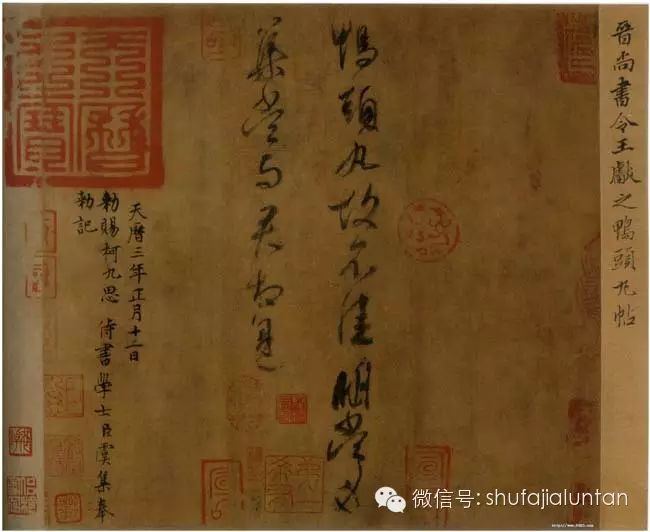 晉尚書令王獻之鴨頭丸帖
鴨頭丸故不佳明當必
集當與君相見
天曆三年正月十二日
勑賜柯九思侍書學士臣虞集奉
勑記
天曆之寶
微信号: shufajialuntan